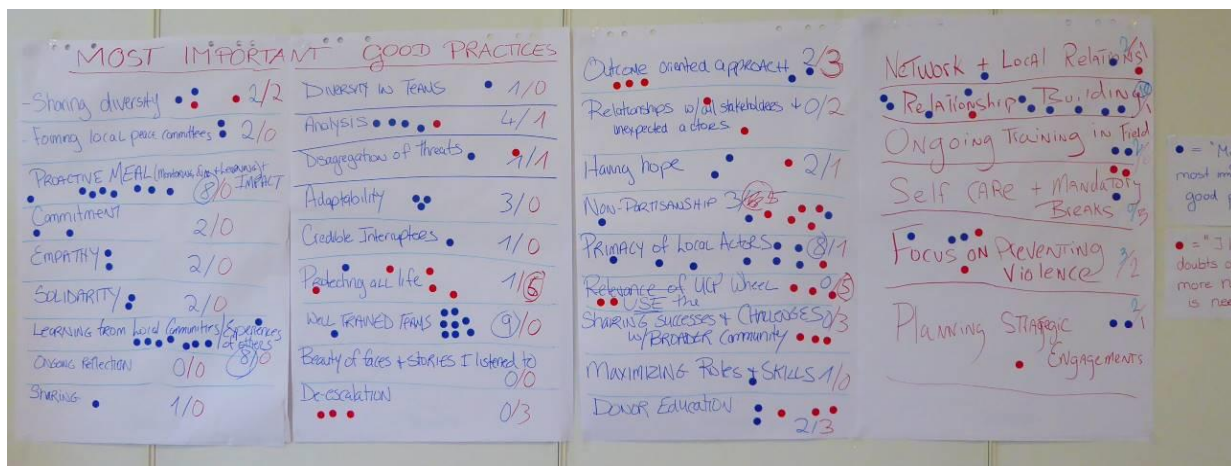 MOST IMPORTANT GOOD PRACTICES
-Sharing diversity 2/2
-Forming local peace committees 2/0
PROACTIVE MEAL IMPACT
8/0
Commitment
2/0
EMPATHY 2/0
SOLIDARITY 2/0
LEARNING from Local Communities/Experiences
of others
8/0
Ongoing reflection 0/0
Sharing 1/0
DIVERSITY IN TEAMS 1/0
Analysis 4/1
Disagregation of Threats 1/1
Adaptability 3/0
Credible Interruptors 1/0
Protecting all life 1/6
WELL TRAINED TEAMS 9/0
Beauty of faces + stories I listened to
0/0
De-escalation
0/3
Outcome oriented approach 2/3
Relationships w/all stakeholders + 0/2
unexpected actors
Having hope 2/1
NON-PARTISANSHIP 3/
PRIMACY OF LOCAL ACTORS 8/1
Relevance of UCP Wheel 0/5
USE the
SHARING SUCCESSES + CHALLENGES 0/3
w/BROADER COMMUNITY
MAXIMIZING Roles + SKILLS 1/0
DONOR EDUCATION
2/3
NETWORK + Local Relations
Relationship Building
ONGOING TRAINING in Field
Self CARe + Mandatory
BREAKS
FOCUS ON PREVENTING
VIOLENCE 3/2
PLANNING STRATEGIC 2/1
ENGAGEMENTS
= "M
most im
good p
= "I
doubts o
more n
is nee